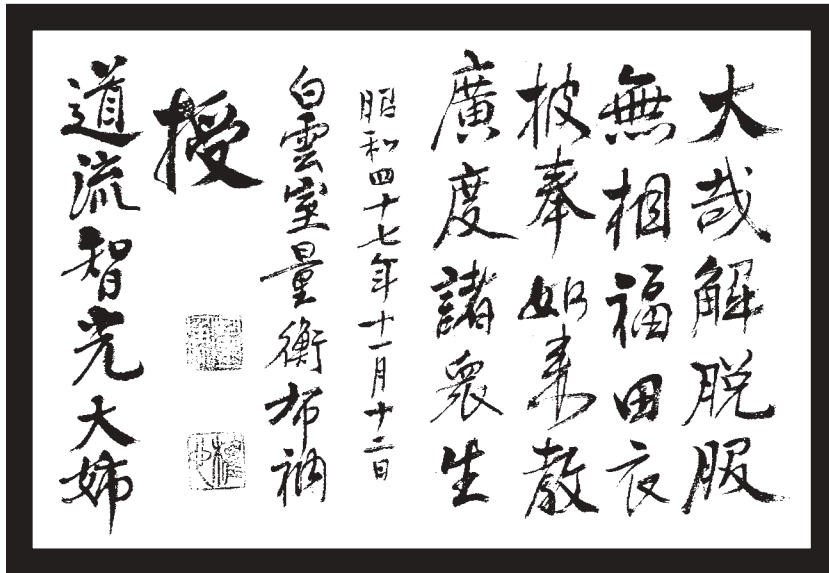 大哉解脱服
無相福田衣
披奉如来教
廣度諸衆生
昭和四十七年十一月十二日
白雲室量衡布衲
授
道流智光大姉